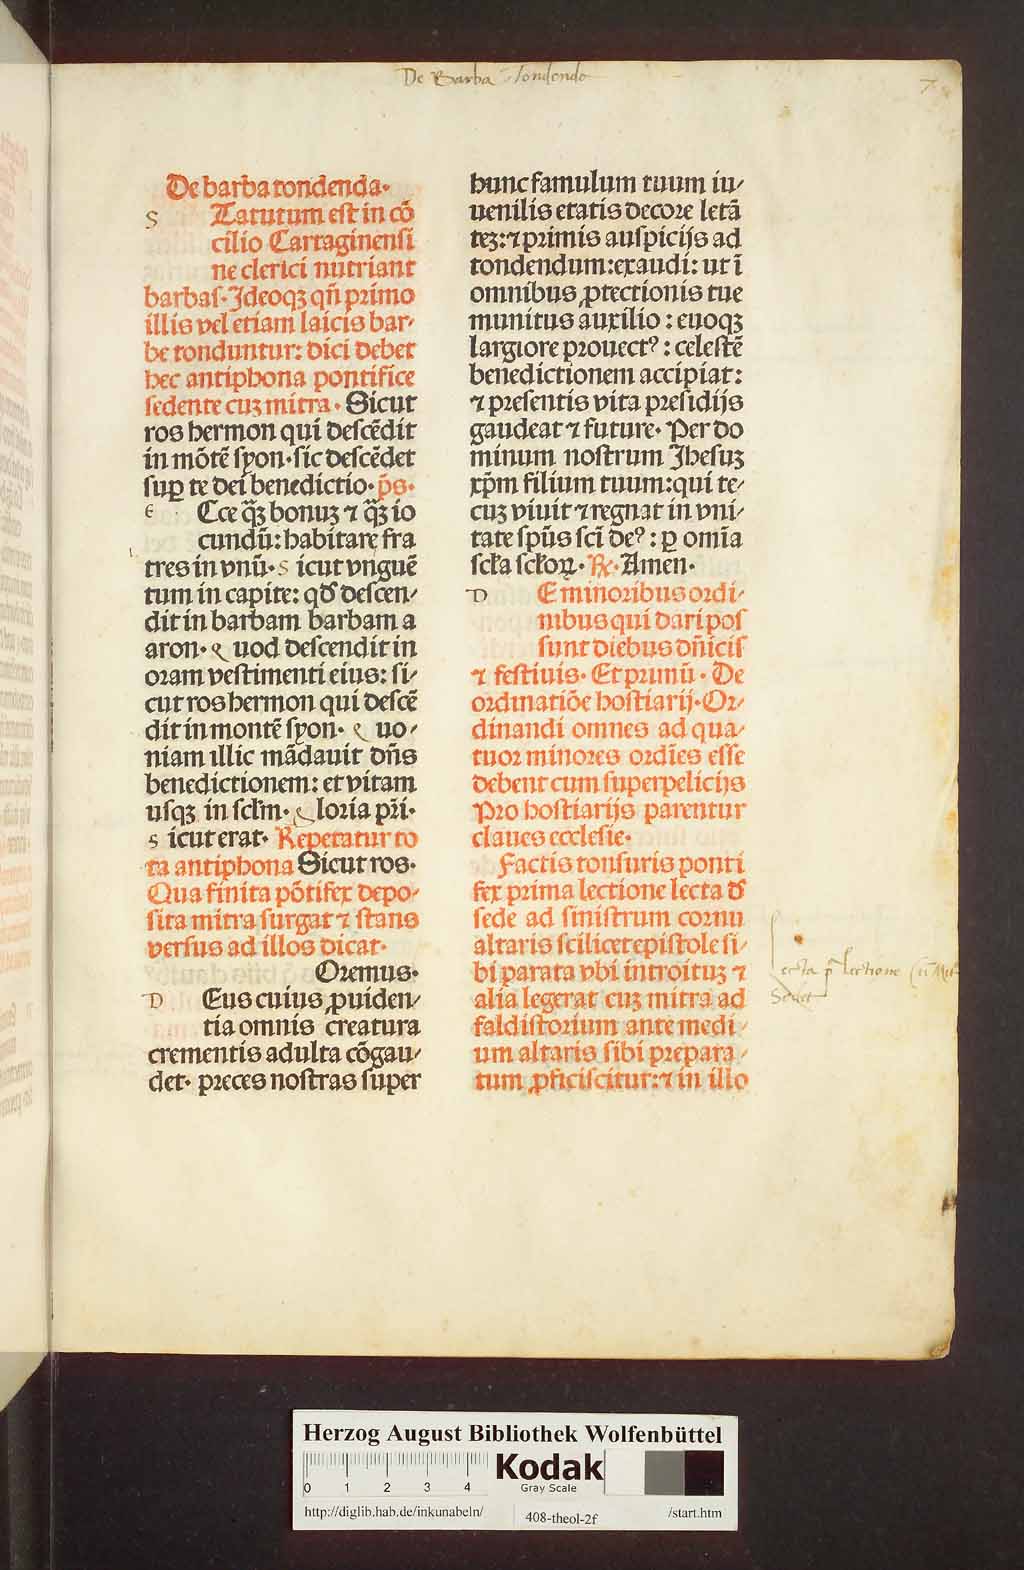 De Barba Tondendo
7
De barba tondenda·
s Tatutum est in cō
cilio Cartaginensi
ne clerici nutriant
barbas· Ideoqꝫ qn̄ primo
illis vel etiam laicis bar⸗
be tonduntur: dici debet
hec antiphona pontifice
sedente cuꝫ mitra· Sicut
ros hermon qui descēdit
in mōtē syon· sic descēdet
suꝑ te dei benedictio· p̄s·
e Cce q̄ꝫ bonuꝫ ⁊ q̄ꝫ io
cundū: habitare fra
tres in vnū· s icut vnguē
tum in capite: qđ descen⸗
dit in barbam barbam a
aron· q uod descendit in
oram vestimenti eius: si⸗
cut ros hermon qui descē
dit in montē syon· q uo⸗
niam illic mādauit dn̄s
benedictionem: et vitam
usqꝫ in scl̄m· g loria pr̄i·
s icut erat· Repetatur to
ta antiphona Sicut ros·
Qua finita pōtifex depo⸗
sita mitra surgat ⁊ stans
versus ad illos dicat·
Oremus·
D Eus cuius ꝓuiden⸗
tia omnis creatura
crementis adulta cōgau⸗
det· preces nostras super
hunc famulum tuum iu⸗
uenilis etatis decore letā
teꝫ: ⁊ primis auspicijs ad
tondendum: exaudi: ut ī
omnibus ꝓtectionis tue
munitus auxilio: euoqꝫ
largiore prouectꝰ: celestē
benedictionem accipiat:
⁊ presentis vita presidijs
gaudeat ⁊ future· Per do
minum nostrum Jhesuꝫ
xp̄m filium tuum: qui te⸗
cuꝫ viuit ⁊ regnat in vni⸗
tate sp̄us sc̄i deꝰ: ꝑ om̄ia
scl̄a scl̄oꝝ· ℞· Amen·
D E minoribus ordi⸗
nibus qui dari pos
sunt diebus dn̄icis
⁊ festiuis· Et primū· De
ordinatiōe hostiarij· Or⸗
dinandi omnes ad qua⸗
tuor minores ordīes esse
debent cum superpelicijs
Pro hostiarijs parentur
claues ecclesie·
Factis tonsuris ponti
fex prima lectione lecta đ
sede ad sinistrum cornu
altaris scilicet epistole si⸗
bi parata vbi introituꝫ ⁊
alia legerat cuꝫ mitra ad
faldistorium ante medi⸗
um altaris sibi prepara⸗
tum ꝓficiscitur: ⁊ in illo
Lecta p lectione
Sedet
Herzog August Bibliothek Wolfenbüttel
0 1 2 3 4
Kodak
Gray Scale
http://diglib.hab.de/inkunabeln/
408-theol-2f
/start.htm